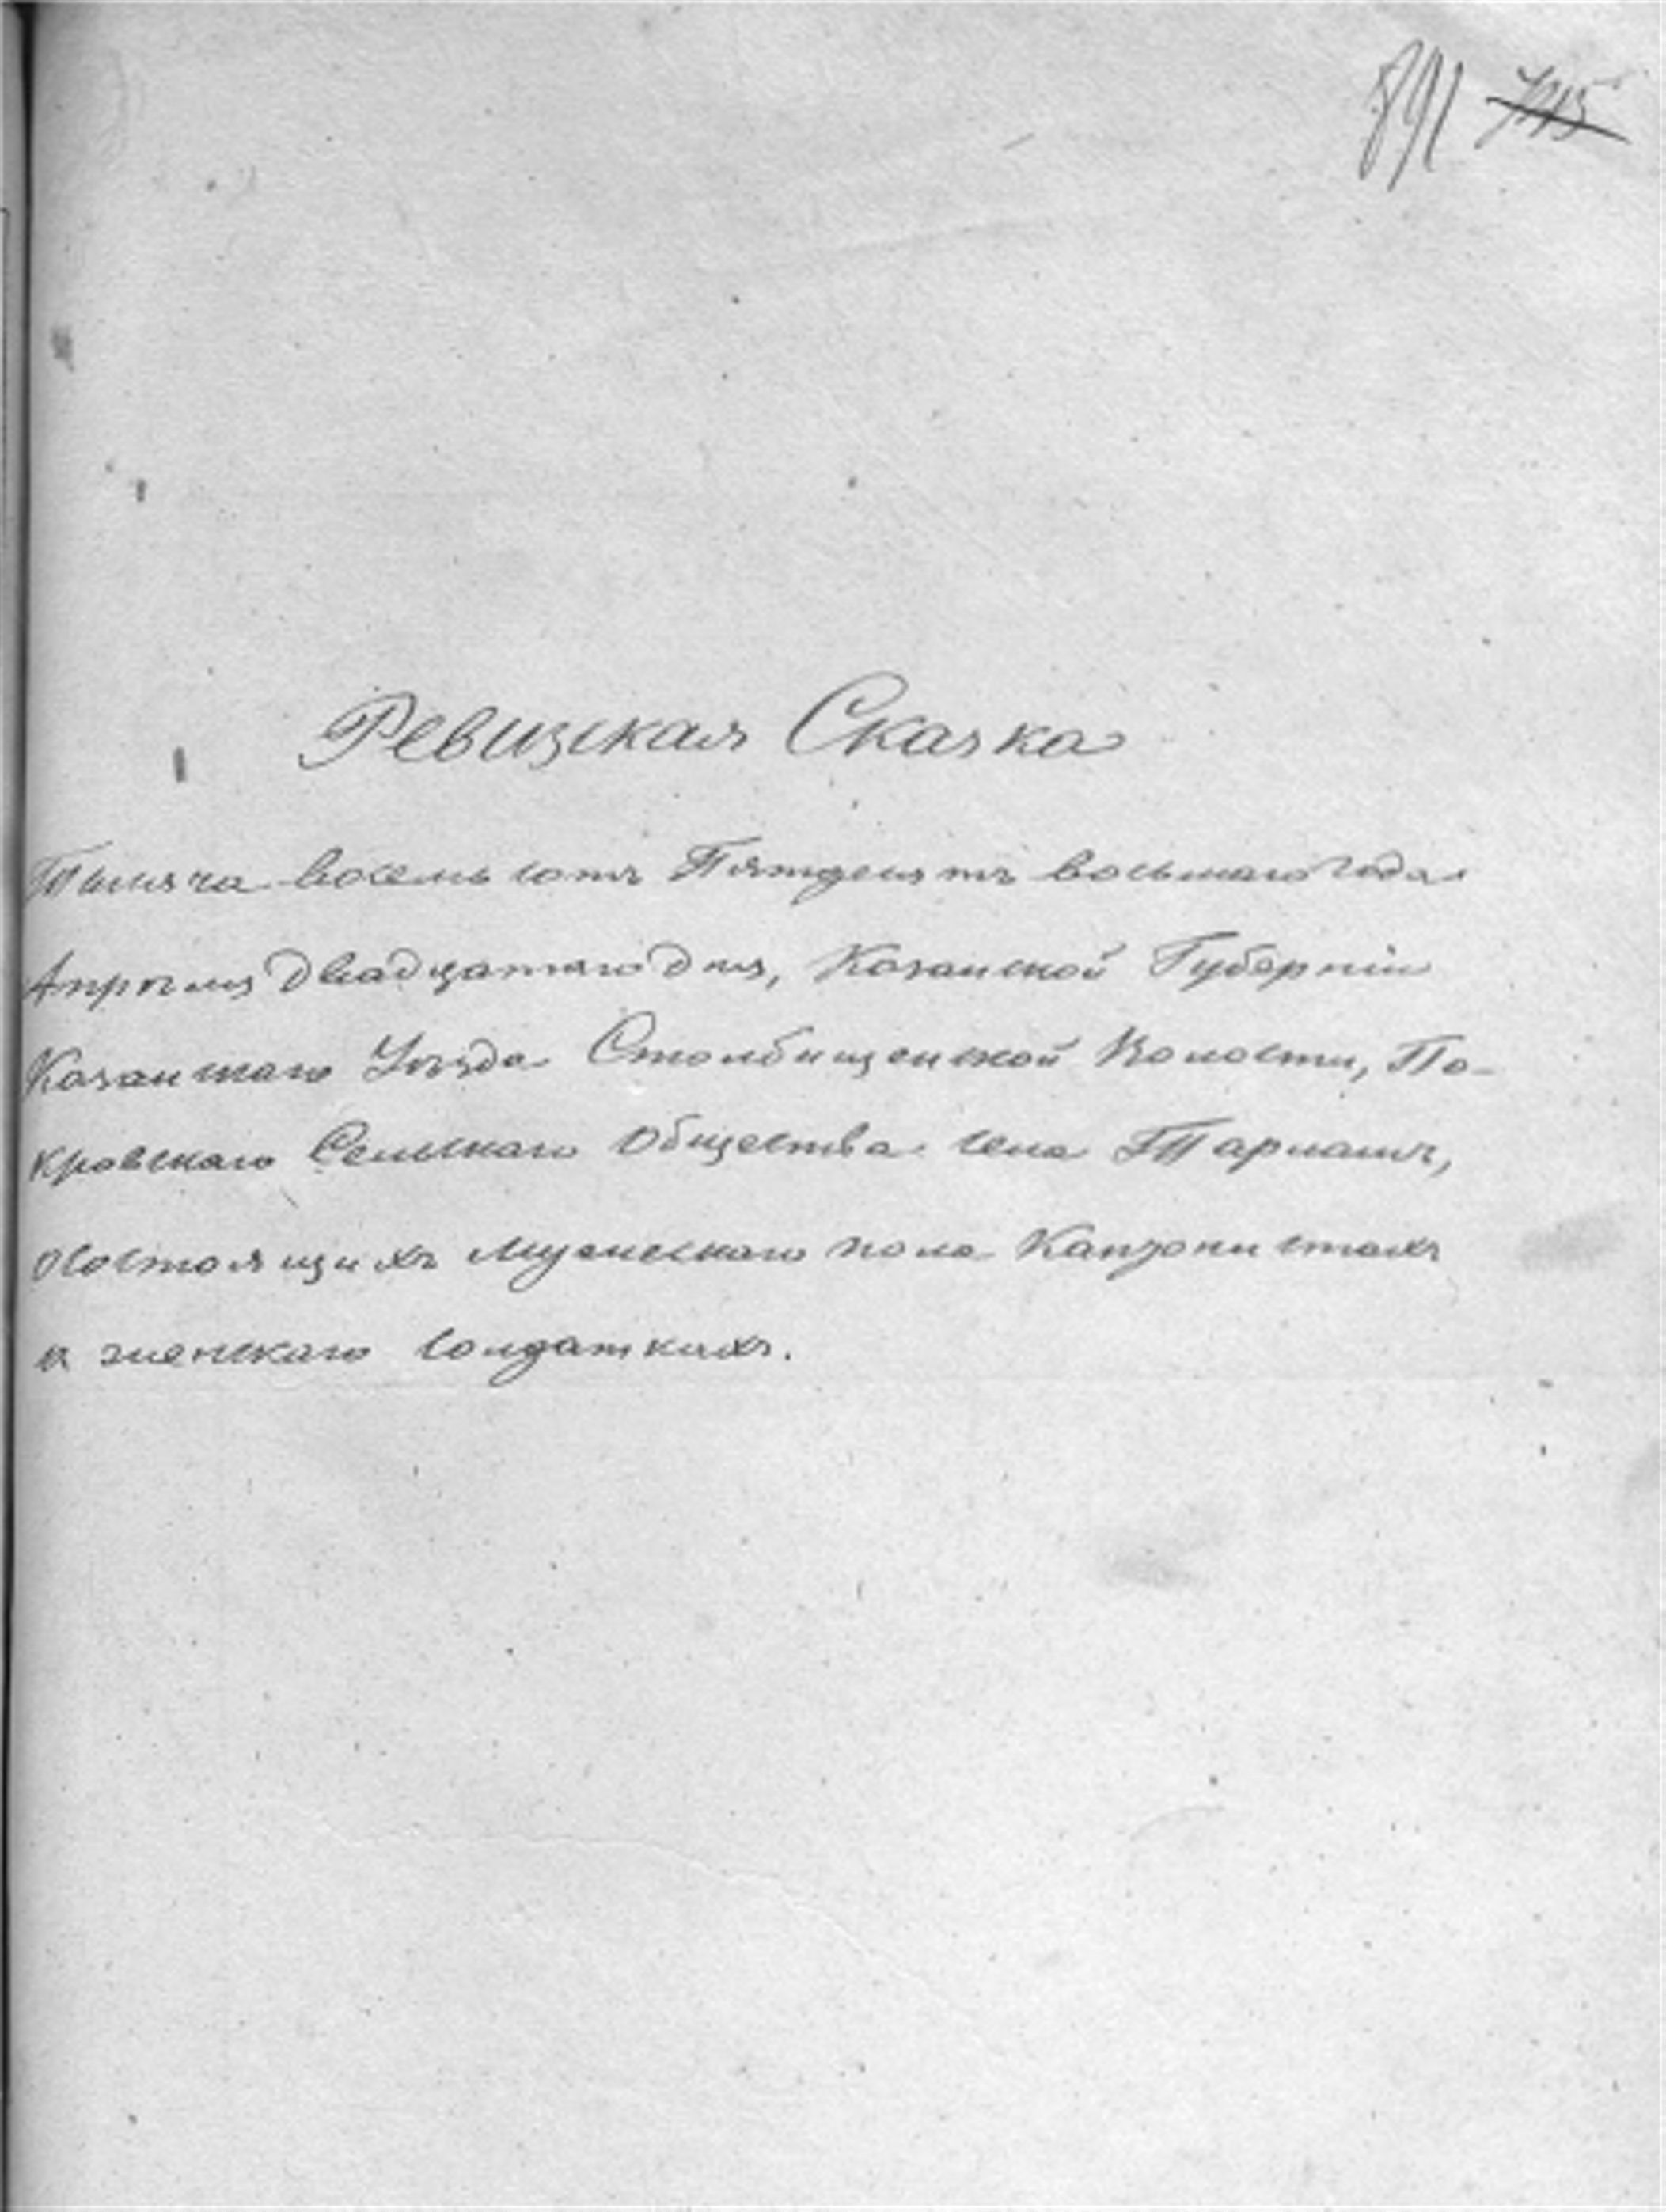 891
Ревизская Сказка
Тысяча восемь сотъ Пятьдесятъ восьмаго года
Апрѣля двадцатаго дня, Казанской Губерніи
Казанскаго Уѣзда Столбищенской Волости, По-
кровскаго Сельскаго Общества села Тарлашъ,
о состоящихъ мужескаго пола Кантонистахъ
и женскаго солдаткахъ.